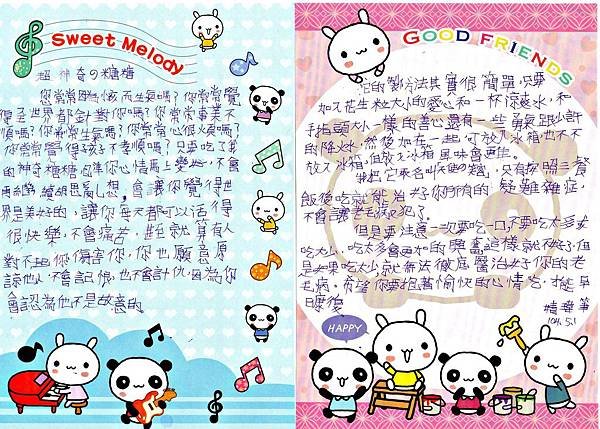 Sweet Melody
超神奇的糖糖
您常常因為小孩而生氣嗎?你常常覺
得全世界都針對你嗎?你常常事業不
順嗎?你常常生氣嗎?你常常心很火嗎?
你常常覺得孩子不孝順嗎?只要吃了我
的神奇糖糖,讓你心情馬上變好,不會
再胡思亂想,會讓你覺得世
界是美好的,讓你每天都可以活得
很快樂,不會痛苦,並且就算有人
對不起你,傷害你,你也願意原
諒他人,不會記恨,也不會計仇,因為你
會認為他不是故意的。
GOOD FRIENDS
它的製作方法其實很簡單,只要
加入花生粒大小的愛心和一杯涼爽水,和
指頭大小一樣的善心還有一些勇氣跟少許
的降火水,然後加在一些可放入冰箱也不不
放入冰箱,但放入冰箱風味會更佳。
只有按照三餐
飯後吃就能治好你所有的疑難雜症,
不會讓老毛病再犯了。
但是要注意一次要吃一口,不要吃太多或
吃太少,吃太多會更加的興奮這樣就不好,但
是如果吃太少就無法徹底醫治好你的老
毛病,希望你要抱著愉快的心情吃,才能早
日康復
HAPPY
104.5.1